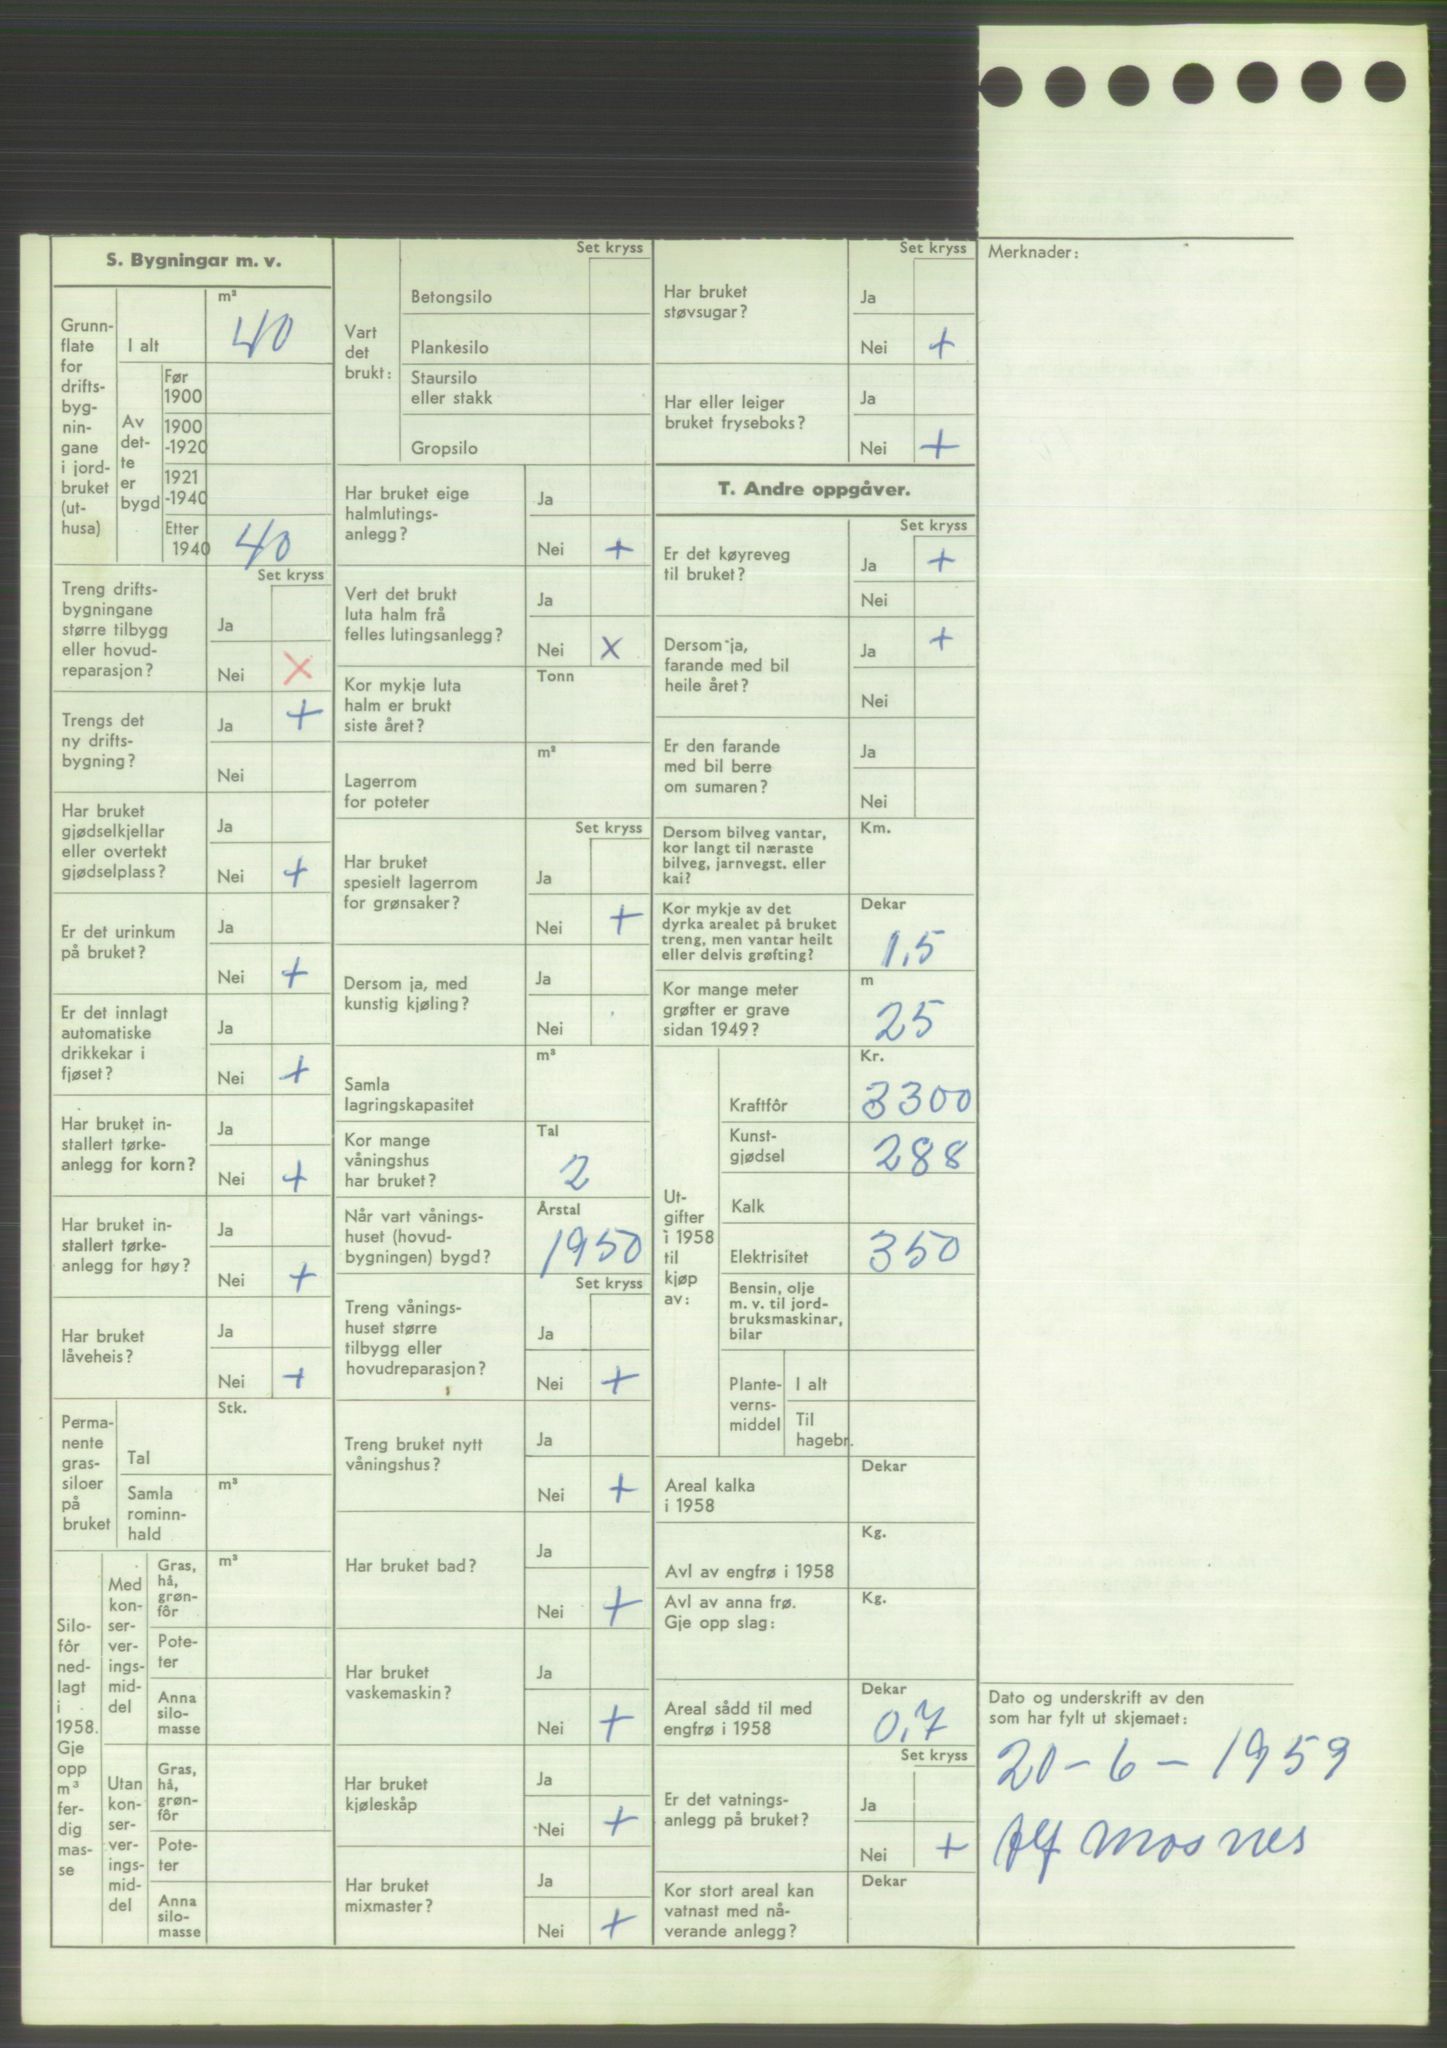 S. Bygningar m. v.
Grunn-
flate
for
drifts-
byg-
nin-
gane
i jord-
bruket
(ut-
husa)
I alt
m²
40
Av
det-
te
er
bygd
Før
1900
1900
-1920
1921
-1940
Etter
1940
40
Set kryss
Treng drifts-
bygningane
større tilbygg
eller hovud-
reparasjon?
Ja
Nei X
Trengs det
ny drifts-
bygning?
Ja +
Nei
Har bruket
gjødselkjellar
eller overtekt
gjødselplass?
Ja
Nei +
Er det urinkum
på bruket?
Ja
Nei +
Er det innlagt
automatiske
drikkekar i
fjøset?
Ja
Nei +
Har bruket in-
stallert tørke-
anlegg for korn?
Ja
Nei +
Har bruket in-
stallert tørke-
anlegg for høy?
Ja
Nei +
Har bruket
låveheis?
Ja
Nei +
Perma-
nente
gras-
siloer
på
bruket
Tal
Stk.
Samla
rominn-
hald
m³
Silo-
fôr
ned-
lagt
i
1958.
Gje
opp
m³
fer-
dig
mas-
se
Med
kon-
ser-
ver-
ings-
mid-
del
Gras,
hå,
grøn-
fôr
m³
Pote-
ter
Anna
silo-
masse
Utan
kon-
ser-
ver-
ings-
mid-
del
Gras,
hå,
grøn-
fôr
Pote-
ter
Anna
silo-
masse
Vart
det
brukt:
Set kryss
Betongsilo
Plankesilo
Staursilo
eller stakk
Gropsilo
Har bruket eige
halmlutings-
anlegg?
Ja
Nei +
Vert det brukt
luta halm frå
felles lutingsanlegg?
Ja
Nei X
Kor mykje luta
halm er brukt
siste året?
Tonn
Lagerrom
for poteter
m³
Set kryss
Har bruket
spesielt lagerrom
for grønsaker?
Ja
Nei +
Dersom ja, med
kunstig kjøling?
Ja
Nei
Samla
lagringskapasitet
m³
Kor mange
våningshus
har bruket?
Tal
2
Når vart vånings-
huset (hovud-
bygningen) bygd?
Årstal
1950
Set kryss
Treng vånings-
huset større
tilbygg eller
hovudreparasjon?
Ja
Nei +
Treng bruket nytt
våningshus?
Ja
Nei +
Har bruket bad?
Ja
Nei +
Har bruket
vaskemaskin?
Ja
Nei +
Har bruket
kjøleskåp
Ja
Nei +
Har bruket
mixmaster?
Ja
Nei +
Set kryss
Har bruket
støvsugar?
Ja
Nei +
Har eller leiger
bruket fryseboks?
Ja
Nei +
T. Andre oppgåver.
Set kryss
Er det køyreveg
til bruket?
Ja +
Nei
Dersom ja,
farande med bil
heile året?
Ja +
Nei
Er den farande
med bil berre
om sumaren?
Ja
Nei
Dersom bilveg vantar,
kor langt til næraste
bilveg, jarnvegst. eller
kai?
Km.
Kor mykje av det
dyrka arealet på bruket
treng, men vantar heilt
eller delvis grøfting?
Dekar
1,5
Kor mange meter
grøfter er grave
sidan 1949?
m
25
Ut-
gifter
i 1958
til
kjøp
av:
Kr.
Kraftfôr 3300
Kunst-
gjødsel 288
Kalk
Elektrisitet 350
Bensin, olje
m. v. til jord-
bruksmaskinar,
bilar
Plante-
verns-
middel
I alt
Til
hagebr.
Areal kalka
i 1958
Dekar
Avl av engfrø i 1958
Kg.
Avl av anna frø.
Gje opp slag:
Kg.
Areal sådd til med
engfrø i 1958
Dekar
0,7
Set kryss
Er det vatnings-
anlegg på bruket?
Ja
Nei +
Kor stort areal kan
vatnast med nå-
verande anlegg?
Dekar
Merknader:
Dato og underskrift av den
som har fylt ut skjemaet:
20-6-1959
Alf Mosnes